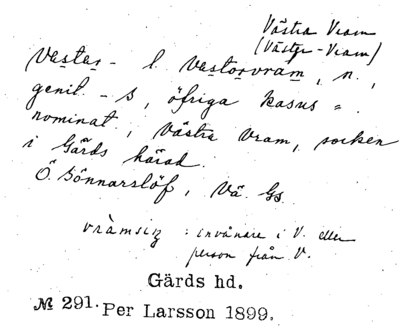 Västra Vram
(Väster-Vram)
Vastar- l. vastorvram, n.,
genit. -s, öfriga kasus =
nominat., Västra Vram, socken
i Gärds härad.
Ö. Sönnarslöf, Vä. Gs.
vràmsiz : invånare i V. eller
person från V.
Gärds hd.
№ 291. Per Larsson 1899.